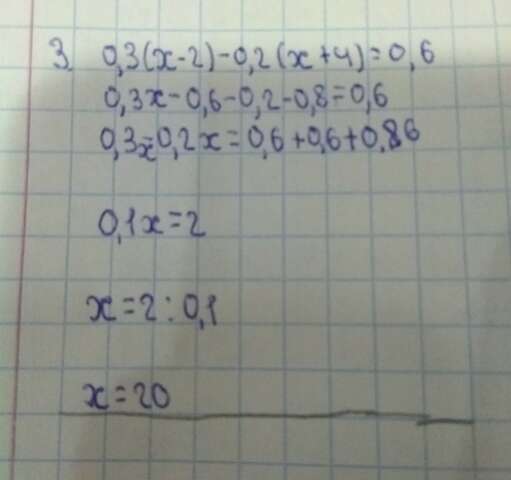 3. 0,3(x-2)-0,2(x+4)=0,6
0,3x-0,6-0,2-0,8=0,6
0,3x-0,2x=0,6+0,6+0,86
0,1x=2
x=2:0,1
x=20